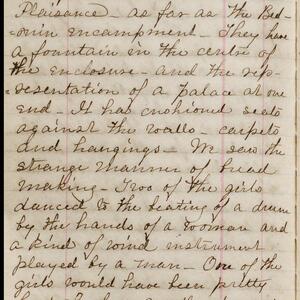 Plaisance - as far as the Bed-
ouin encampment - They have
a fountain in the centre of
the enclosure - and the rep-
resentation of a Palace at one
end - It has cushioned seats
against the walls - carpets
and hangings - We saw the
strange manner of bread
making - Two of the girls
danced to the beating of a drum
by the hands of a woman and
a kind of wind instrument
played by a man - One of the
girls would have been pretty